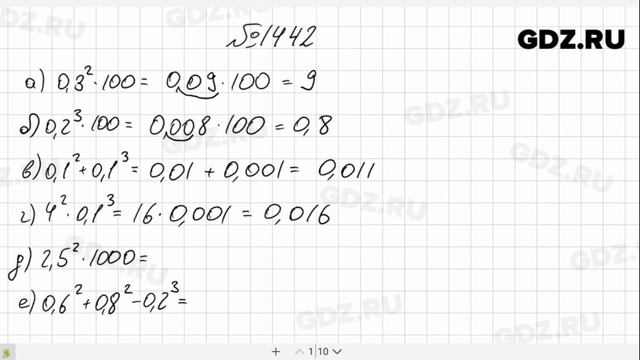 №1442
GDZ.RU
а) 0,3²·100 = 0,09·100 = 9
б) 0,2³·100 = 0,008·100 = 0,8
в) 0,1²+0,1³ = 0,01 + 0,001 = 0,011
г) 4²·0,1³ = 16·0,001 = 0,016
д) 2,5²·1000 =
е) 0,6²+0,8²-0,2³ =
GDZ.RU
GDZ.RU
GDZ.RU
GDZ.RU
GDZ.RU
1 10